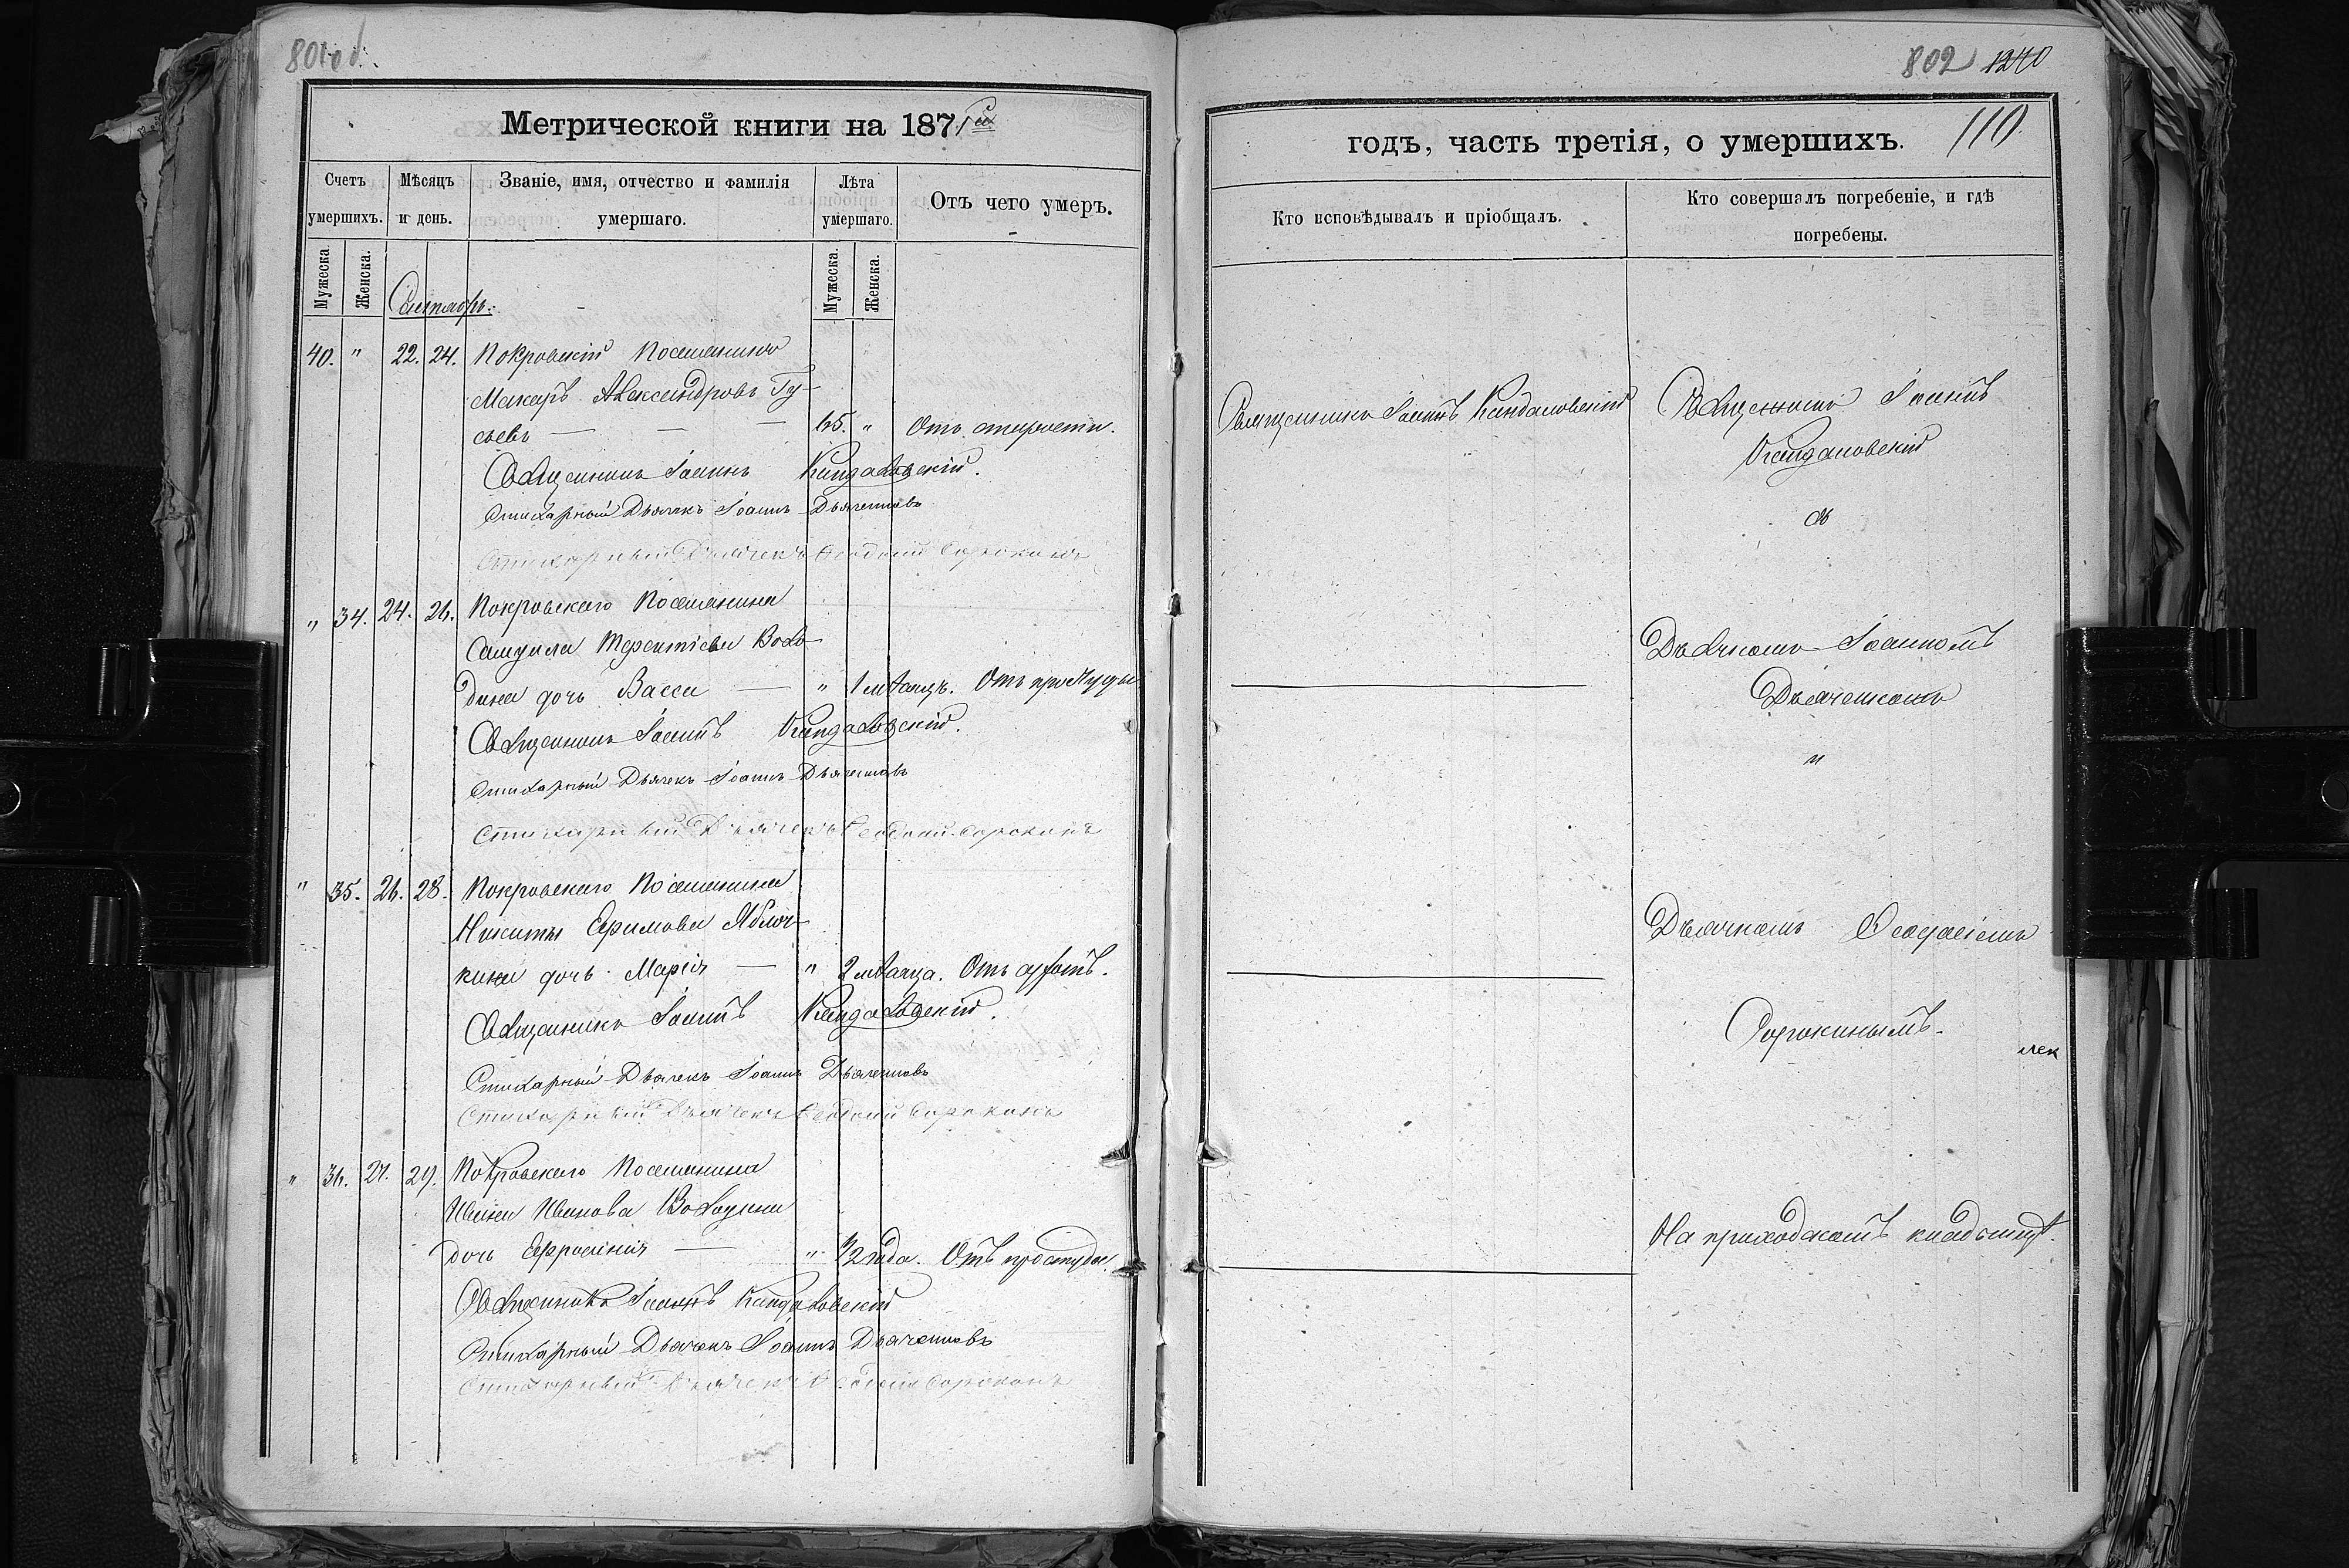 801 об.
Метрической книги на 1871й
Счетъ умершихъ.
Мѣсяцъ и день.
Званіе, имя, отчество и фамилія умершаго.
Лѣта умершаго.
Отъ чего умеръ.
Мужеска. Женска.
Мужеска. Женска.
Сентябрь.
40. " 22. 24. Покровскій Поселянинъ
Макаръ Александровъ Гу-
съевъ — — — 65. " Отъ старости.
Священникъ Іоаннъ Кандаловскій.
Стихарный Дьячекъ Іоаннъ Дьяченковъ
Стихарный Дьячекъ Ѳеодосій Сорокинъ
" 34. 24. 26. Покровскаго Поселянина
Самуила Терентіева Воло-
дина дочь Васса — " 1 мѣсяцъ. Отъ простуды
Священникъ Іоаннъ Кандаловскій.
Стихарный Дьячекъ Іоаннъ Дьяченковъ
Стихарный Дьячекъ Ѳеодосій Сорокинъ
" 35. 26. 28. Покровскаго Поселянина
Никиты Ефимова Яблоч-
кина дочь Марія — " 2 мѣсяца. Отъ
Священникъ Іоаннъ Кандаловскій.
Стихарный Дьячекъ Іоаннъ Дьяченковъ
Стихарный Дьячекъ Ѳеодосій Сорокинъ
" 36. 27. 29. Покровскаго Поселянина
Ивана Иванова
дочь Ефросинія — " 1/2 года. Отъ простуды.
Священникъ Іоаннъ Кандаловскій
Стихарный Дьячекъ Іоаннъ Дьяченковъ
Стихарный Дьячекъ Ѳеодосій Сорокинъ
802 1240
годъ, часть третія, о умершихъ. 110.
Кто исповѣдывалъ и пріобщалъ.
Кто совершалъ погребеніе, и гдѣ
погребены.
Священникъ Іоаннъ Кандаловскій
Священникъ Іоаннъ
Кандаловскій
съ
Дьячкомъ Іоанномъ
Дьяченковымъ
и
Дьячкомъ Ѳеодосіемъ
Сорокинымъ.
На приходскомъ кладбищѣ.